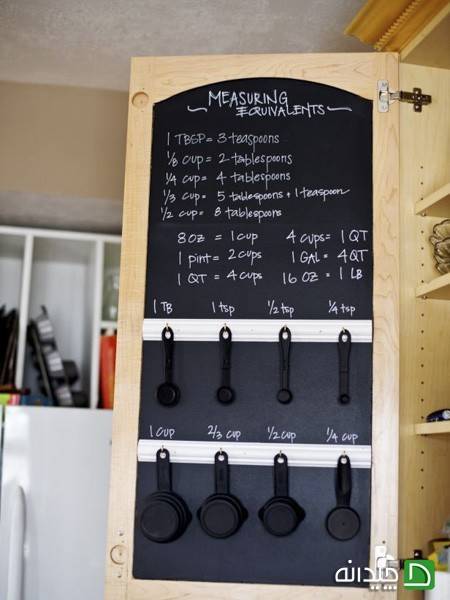 MEASURING
EQUIVALENTS
1 TBSP = 3 teaspoons
1/8 cup = 2 tablespoons
1/4 cup = 4 tablespoons
1/3 cup = 5 tablespoons + 1 teaspoon
1/2 cup = 8 tablespoons
8 oz = 1 cup 4 cups = 1 QT
1 pint = 2 cups 1 GAL = 4 QT
1 QT = 4 cups 16 oz = 1 LB
1 TB 1 tsp 1/2 tsp 1/4 tsp
1 cup 2/3 cup 1/2 cup 1/4 cup
چیدانه